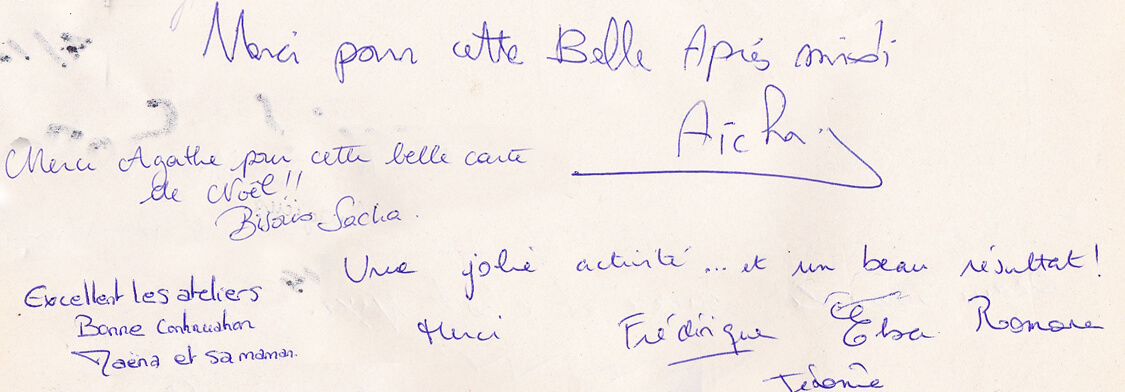 Merci pour cette Belle Après midi
Aïcha
Merci Agathe pour cette belle carte
de Noël!!
Bisous Sacha.
Une jolie activité... et un beau résultat!
Excellent les ateliers
Bonne Continuation
Maëna et sa maman.
Merci Frédérique Elsa Romane